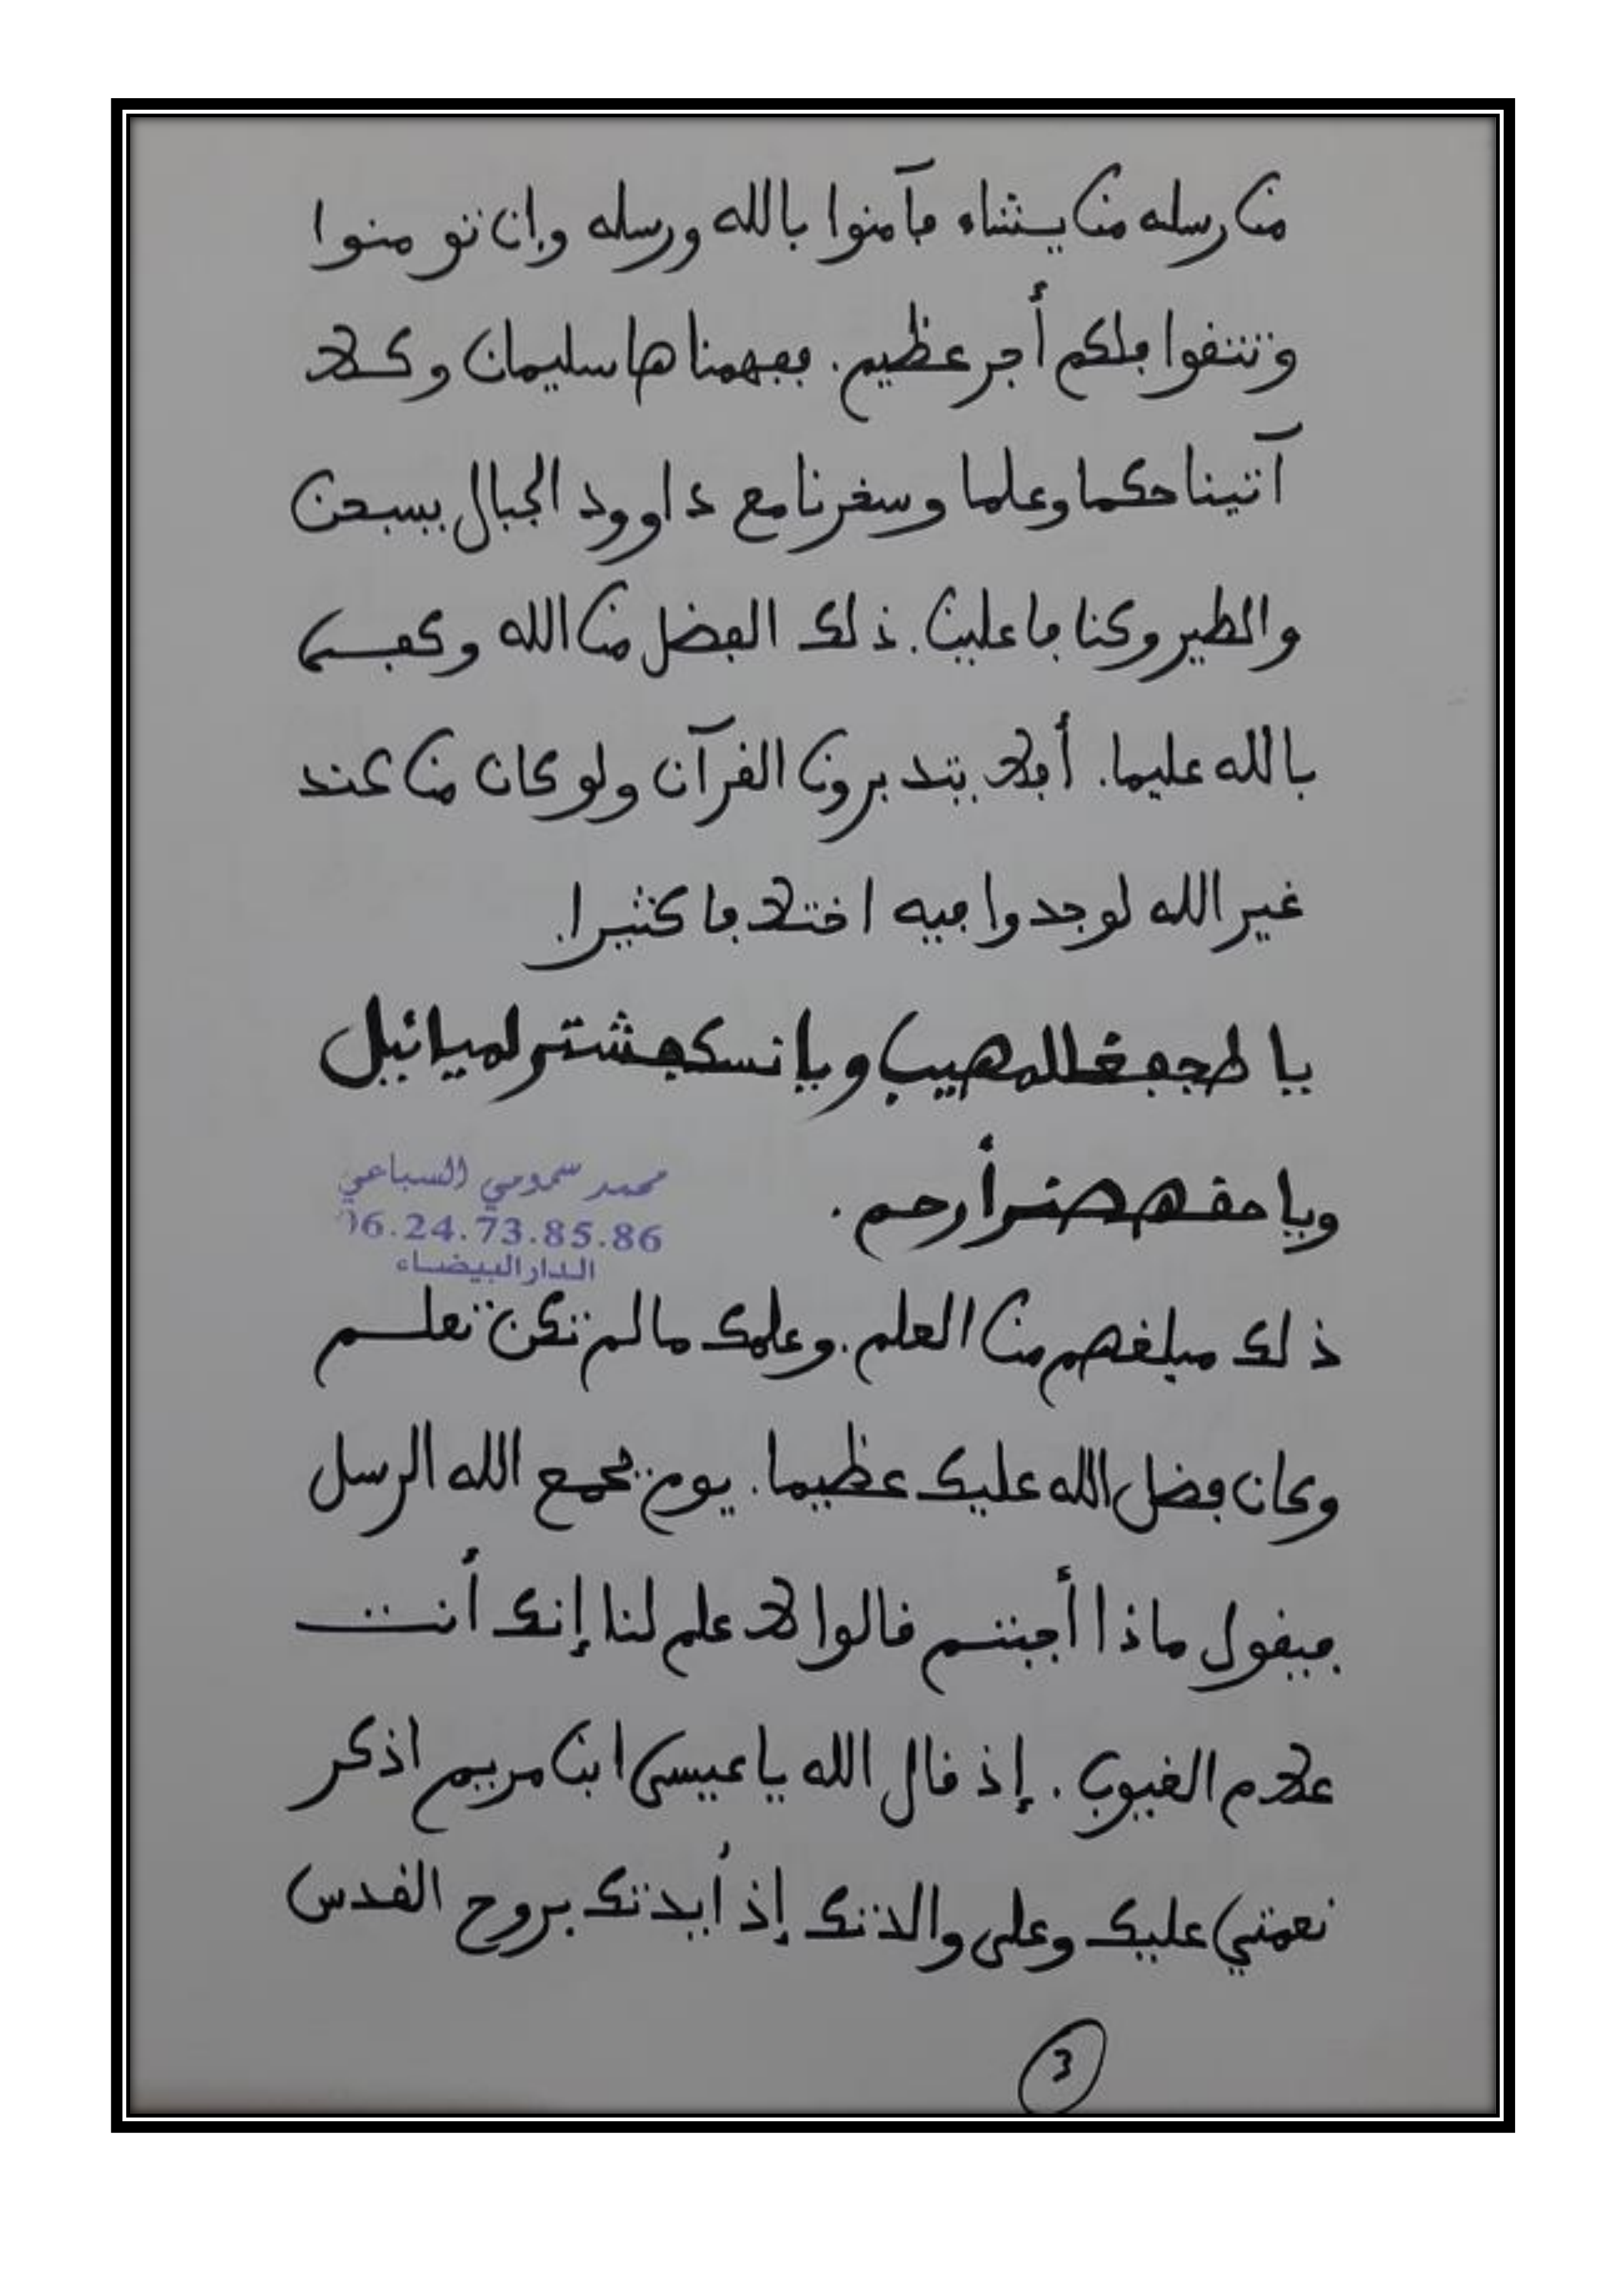 من رسله من يشاء فآمنوا بالله ورسله وإن تومنوا
وتتقوا فلكم أجر عظيم. ففهمناها سليمان وكلا
آتينا حكما وعلما وسخرنا مع داوود الجبال يسبحن
والطير وكنا فاعلين. ذلك الفضل من الله وكفى
بالله عليما. أفلا يتدبرون القرآن ولو كان من عند
غير الله لوجدوا فيه اختلافا كثيرا.
يا
أرحم.
محمد سمومي السباعي
06.24.73.85.86
الدار البيضاء
ذلك مبلغهم من العلم. وعلمك ما لم تكن تعلم
وكان فضل الله عليك عظيما. يوم يجمع الله الرسل
فيقول ماذا أجبتم قالوا لا علم لنا إنك أنت
علام الغيوب. إذ قال الله يا عيسى ابن مريم اذكر
نعمتي عليك وعلى والدتك إذ أيدتك بروح القدس
3